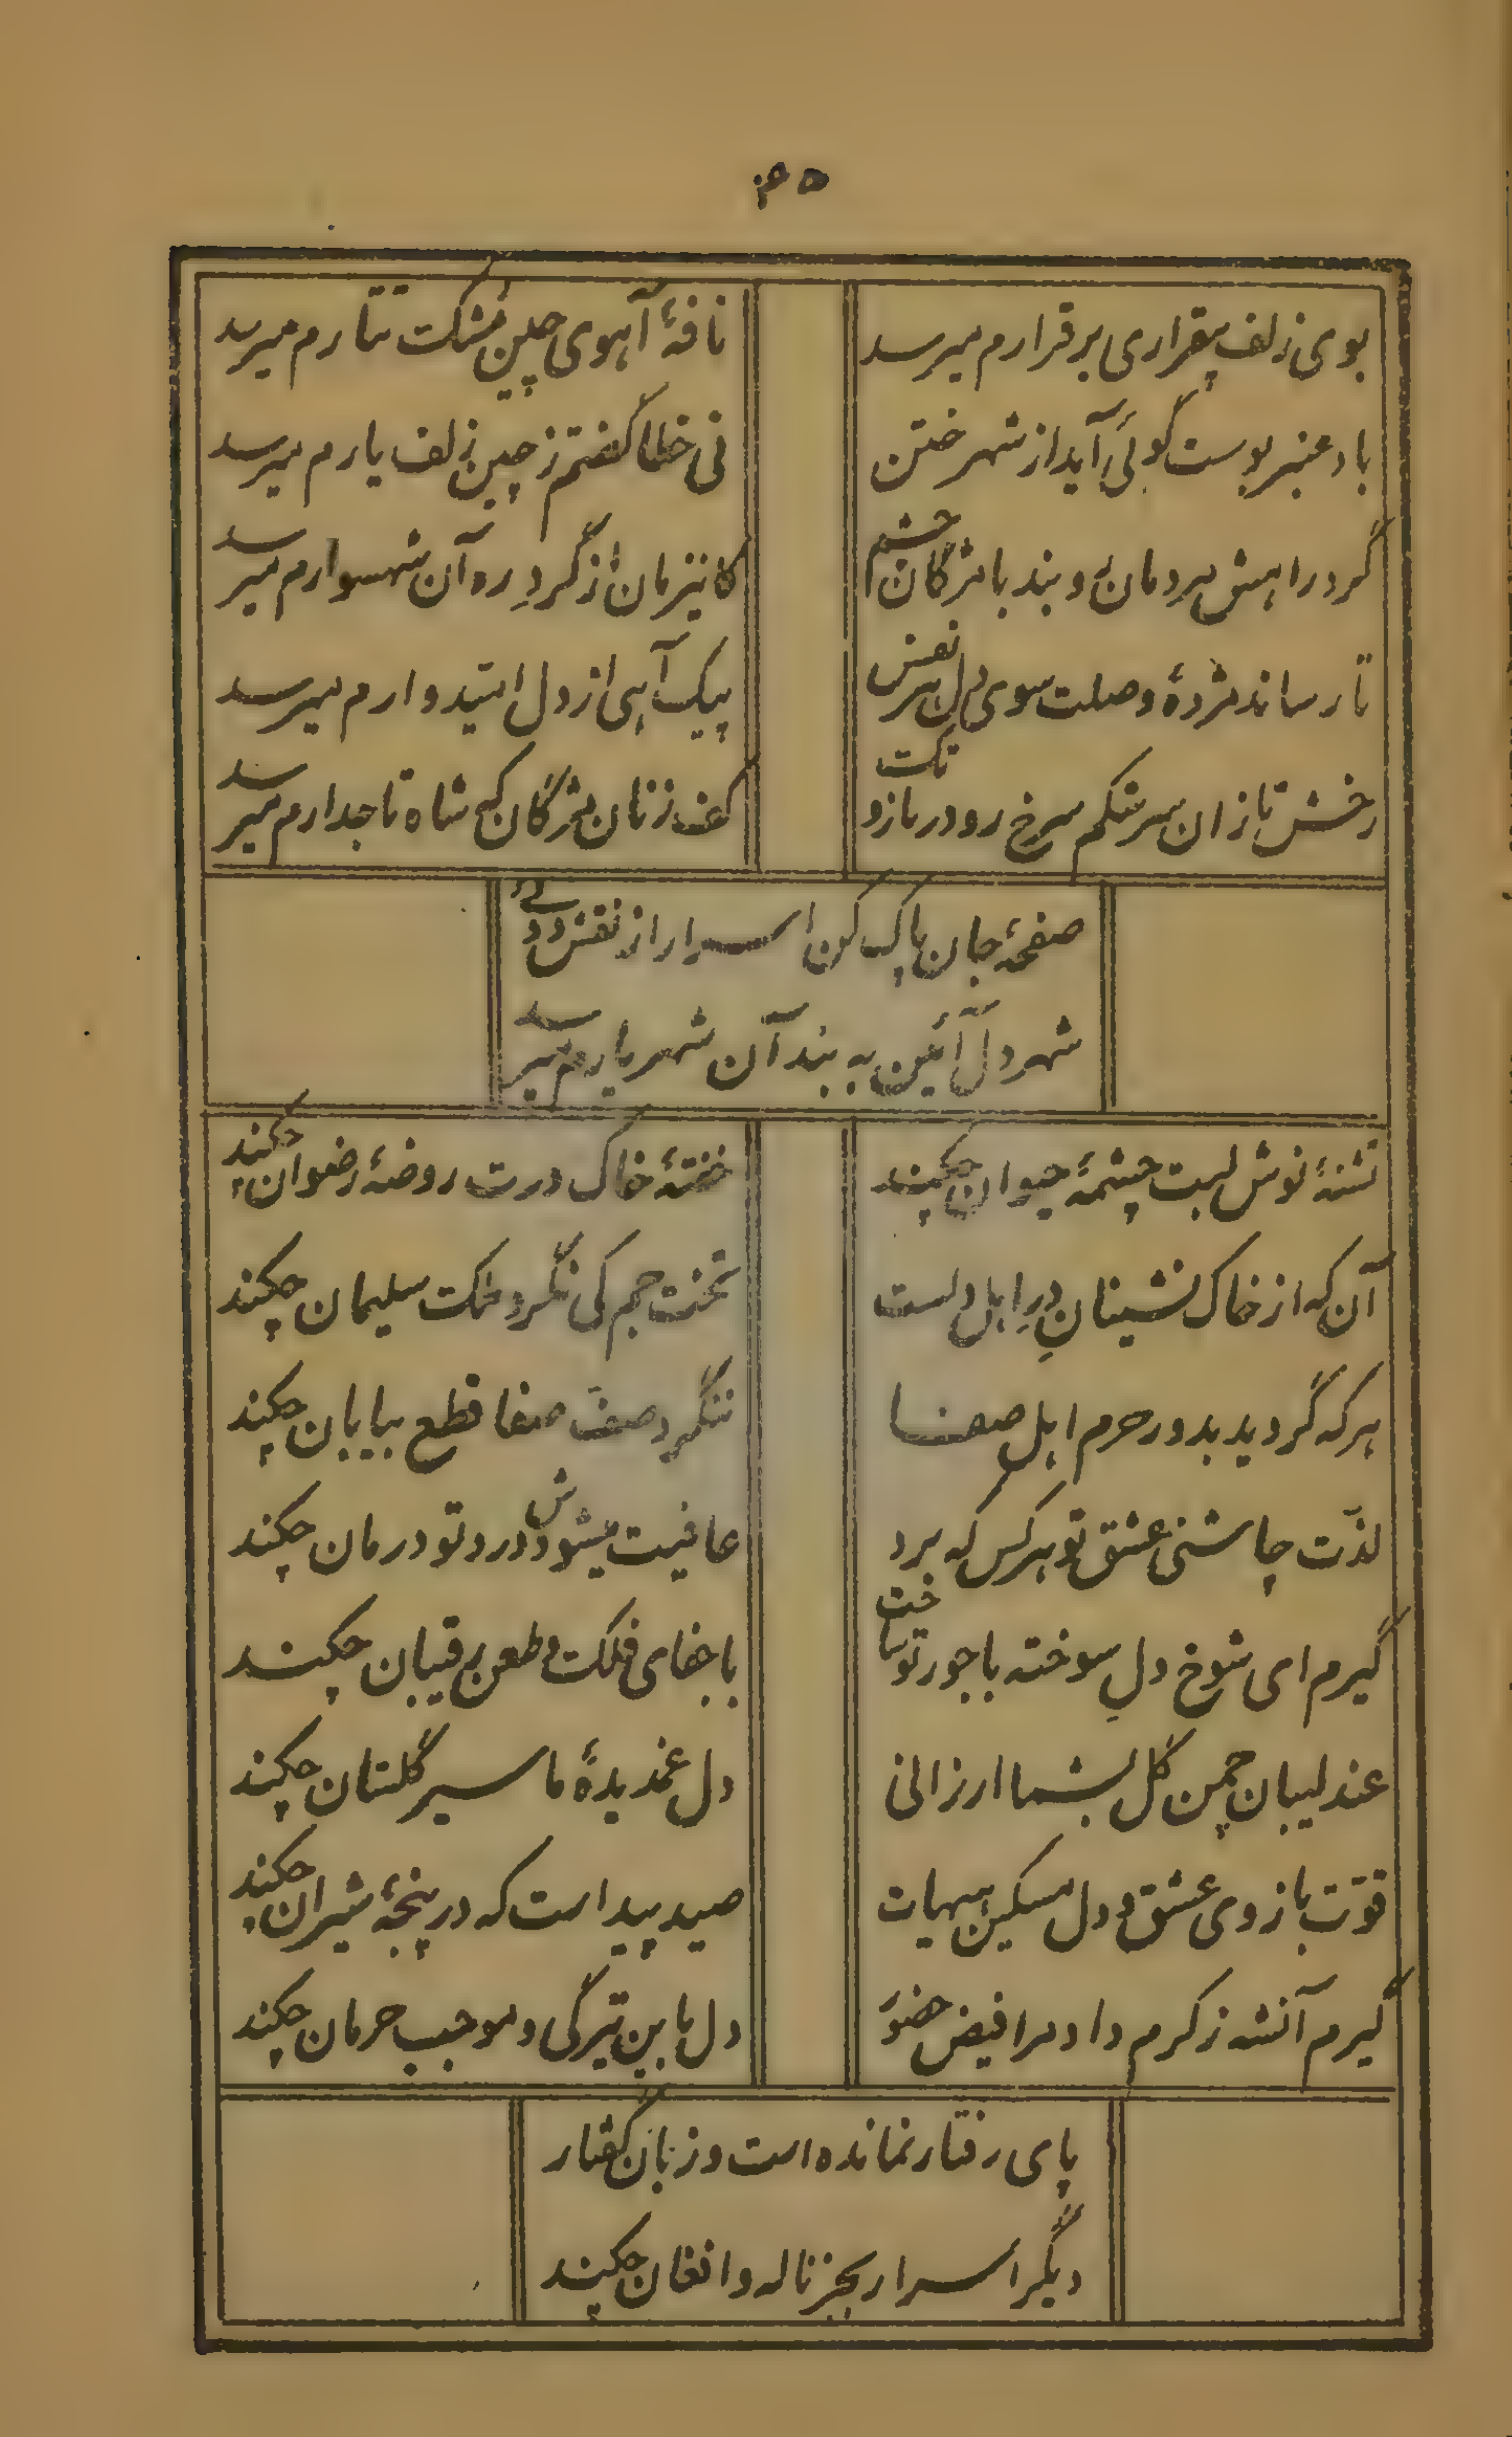 ۴۵
بوی زلف بیقراری برقرارم میرسد
نافهٔ آهوی چین مشکت تتارم میرسد
باد عنبر بوست گوئی آید از شهر ختن
نی خطا گفتم ز چین زلف یارم میرسد
گرد راهش مردمان روبند با مژگان چشم
کاینزمان از گردِ ره آن شهسوارم میرسد
تا رساند مژدهٔ وصلت سوی دل هر نفس
پیک آهی از دل امیدوارم میرسد
رخش تازان سرشکم سرخ رو در تازو تکت
کف زنان مژگان که شاه تاجدارم میرسد
صفحهٔ جان پاک کن اسرار از نقش دوئی
شهر دل آئین به بند آن شهریارم میرسد
تشنهٔ نوش لبت چشمهٔ حیوان چکند
خفتهٔ خاک درت روضهٔ رضوان چکند
آن که از خاک نشینانِ درِ اهل دلست
تخت جم کی نگرد ملکت سلیمان چکند
هر که گردید بدور حرم اهل صفا
ننگرد صفّ صفا قطع بیابان چکند
لذّت چاشنی عشق تو هر کس که برد
عافیت میشودش درد تو درمان چکند
گیرم ای شوخ دلِ سوخته با جور تو ساخت
با جفای فلکت و طعن رقیبان چکند
عندلیبان چمن گل بشما ارزانی
دل غمدیدهٔ ما سیر گلستان چکند
قوّت بازوی عشق و دل مسکین هیهات
صید پیداست که در پنجهٔ شیران چکند
گیرم آنشه ز کرم داد مرا فیض حضوَ
دل باین تیرگی و موجب حرمان چکند
پای رفتار نمانده است و زبان گفتار
دیگر اسرار بجز ناله و افغان چکند